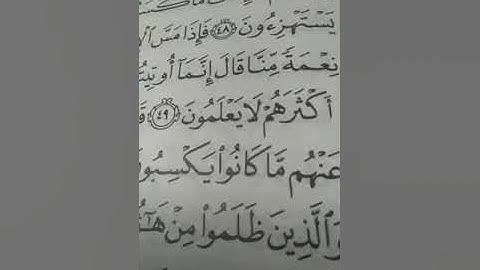 يَسۡتَهۡزِءُونَ ٤٨ فَإِذَا مَسَّ
نِعۡمَةٗ مِّنَّا قَالَ إِنَّمَآ
أَكۡثَرَهُمۡ لَا يَعۡلَمُونَ ٤٩
عَنۡهُم مَّا كَانُواْ يَكۡسِبُونَ
وَٱلَّذِينَ ظَلَمُواْ مِنۡ